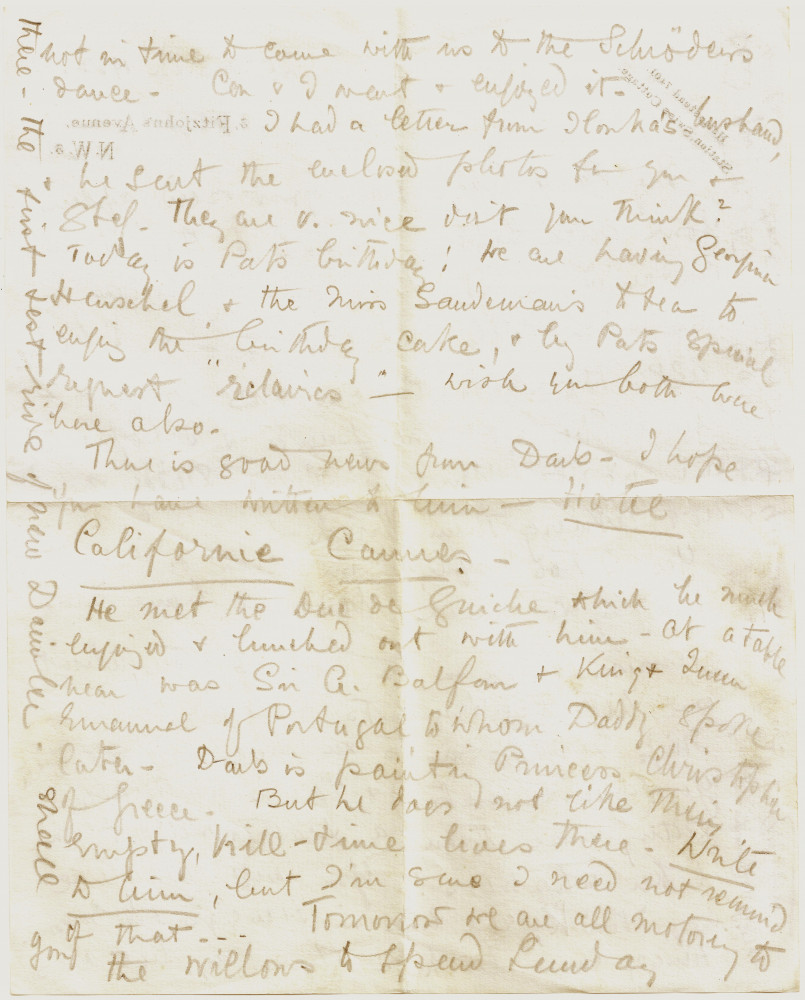 not in time to come with us to the Schröder's
dance - Con & I went & enjoyed it -
I had a letter from Ilonka's husband,
& he sent the enclosed photos for you &
Stef. They are v. nice don't you think?
Today is Pat's birthday! We are having Georgina
Henschel & the Miss Sandeman's to tea to
enjoy the birthday cake, & by Pat's special
request "eclaires" - wish you both were
here also.
There is good news from Dads - I hope
you have written to him - Hotel
Californie Cannes -
He met the Duc de Guiche which he much
enjoyed & lunched out with him - at a table
near was Sir A. Balfour & King & Queen
Emanuel of Portugal to whom Daddy spoke
later - Dads is painting Princess Christopher
of Greece - But he does not like their
empty, kill-time lives there - Write
to him, but I'm sure I need not remind
you of that - - - Tomorrow we are all motoring to
the Willows to spend Sunday
there - the first test-drive of new Daimler. Shall
3 Fitzjohns Avenue.
N.W.3.